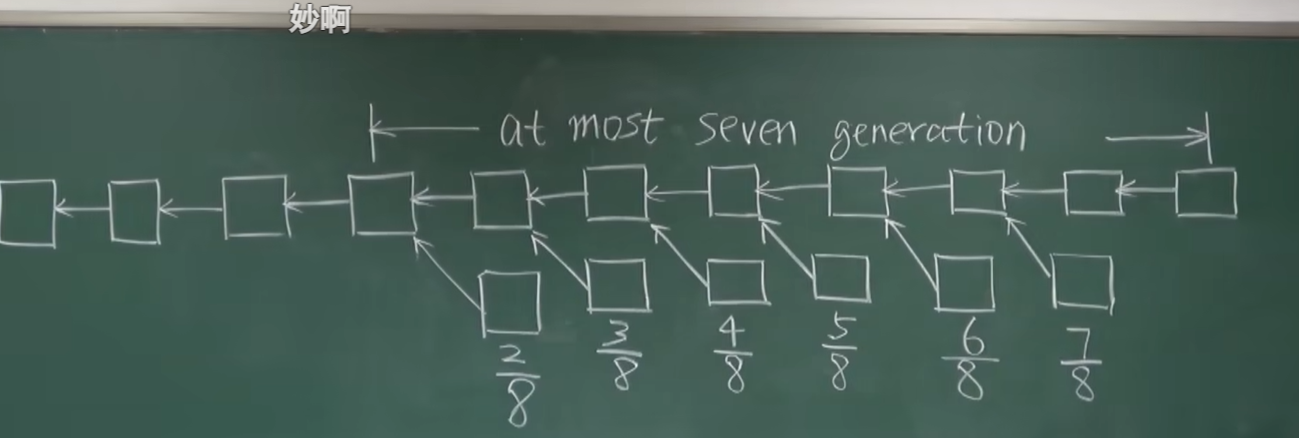 妙啊
at most seven generation
2/8 3/8 4/8 5/8 6/8 7/8